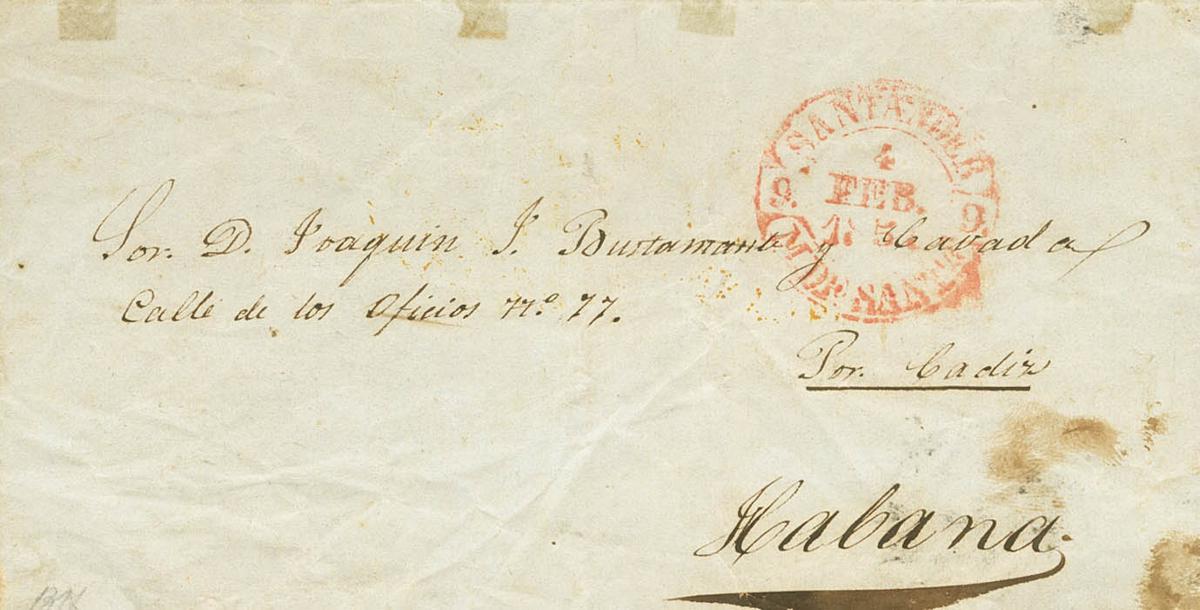 SANTANDER
4
FEB.
9. 9.
M. DE SAN
Sor. D. Joaquin J. Bustamante y Cavada
Calle de los Oficios nº. 77.
Por. Cadiz
Habana.